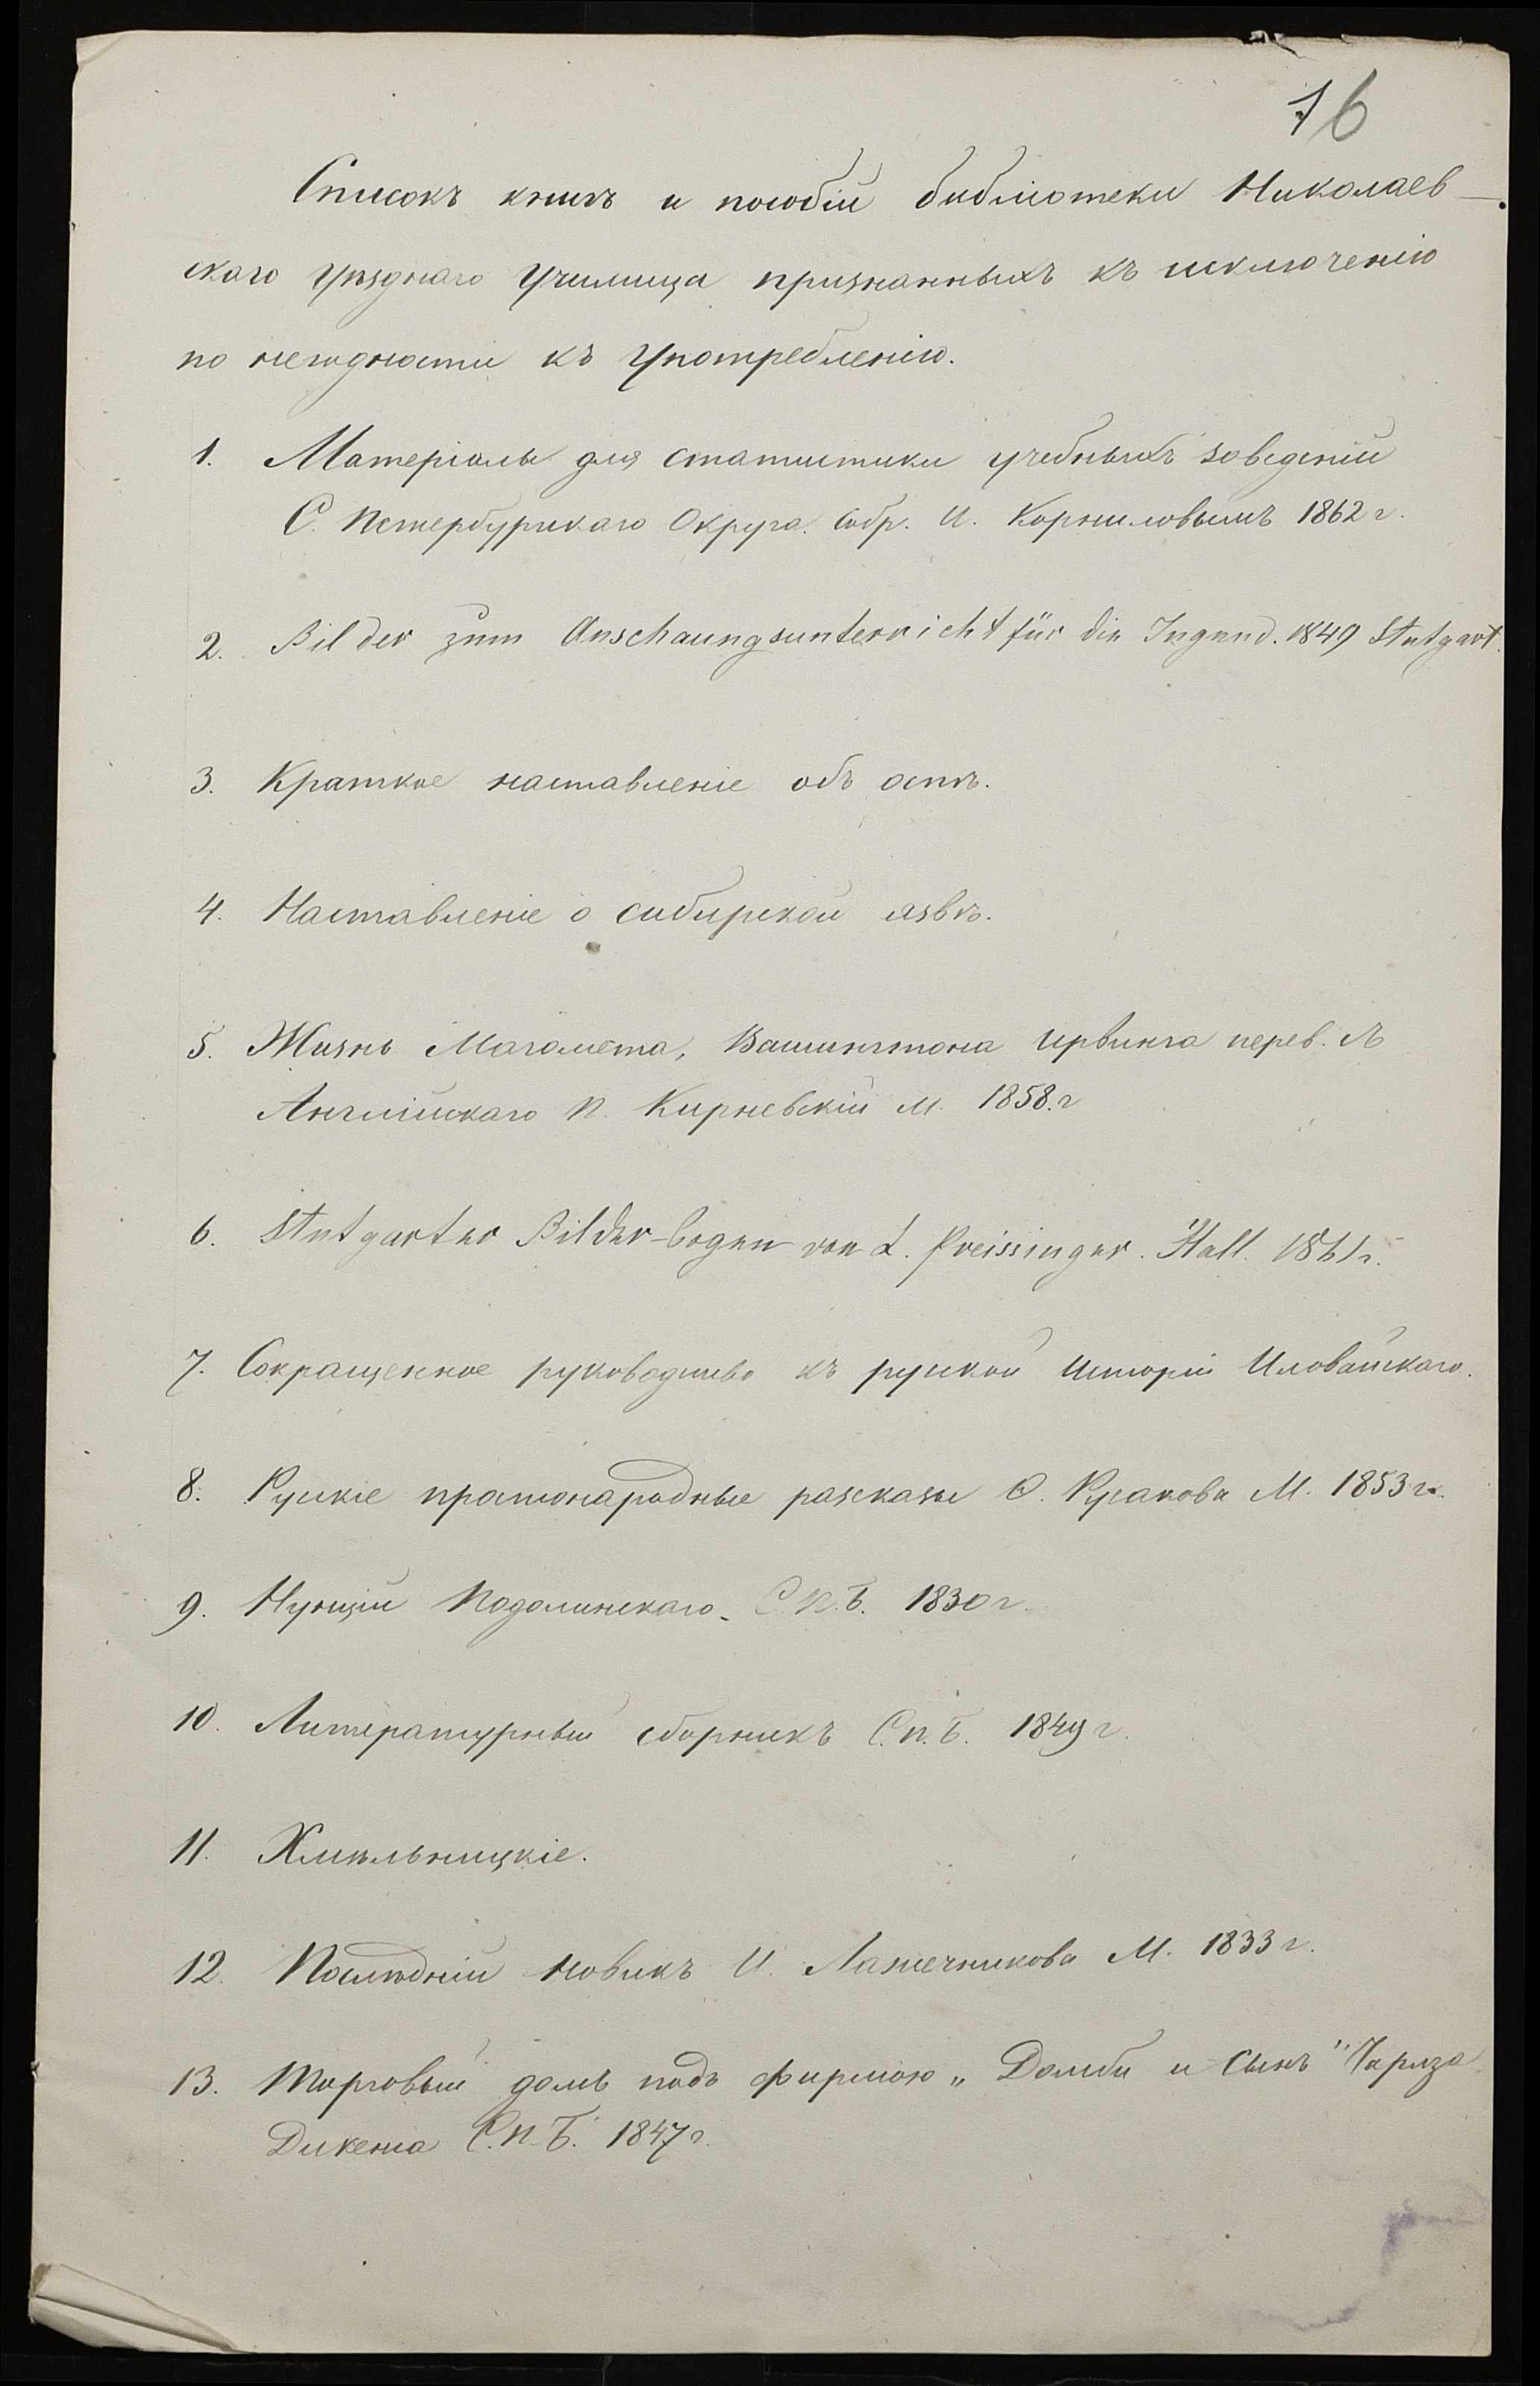 16
Списокъ книгъ и пособій библіотеки Николаев-
скаго Уѣзднаго Училища признанныхъ къ исключенію
по негодности къ Употребленію.
1. Матеріалы для статистики учебныхъ заведеній
С. Петербургскаго Округа. Собр. И. Корниловымъ 1862 г.
2. Bilder zum Anschaungsunterricht für die Jugend. 1849 Stutgart.
3. Краткое наставленіе объ оспѣ.
4. Наставленіе о сибирской язвѣ.
5. Жизнь Магомета, Вашингтона Ирвинга перев. съ
Англійскаго П. Кирѣевскій М. 1858.г
6. Stutgarter Bilder-bogen von L. Preissinger. Hall. 1861г.
7. Сокращенное руководство къ русской Исторіи Иловайскаго.
8. Русскіе простонародные разсказы С. Русакова М. 1853 г.
9. Нищій Подолинскаго. С.П.Б. 1830 г.
10. Литературный сборникъ С.П.Б. 1849 г.
11. Хмѣльницкіе.
12. Послѣдній новикъ И. Лажечникова М. 1833 г.
13. Торговый домъ подъ фирмою „Домби и Сынъ" Чарлза
Дикенса С.П.Б. 1847 г.